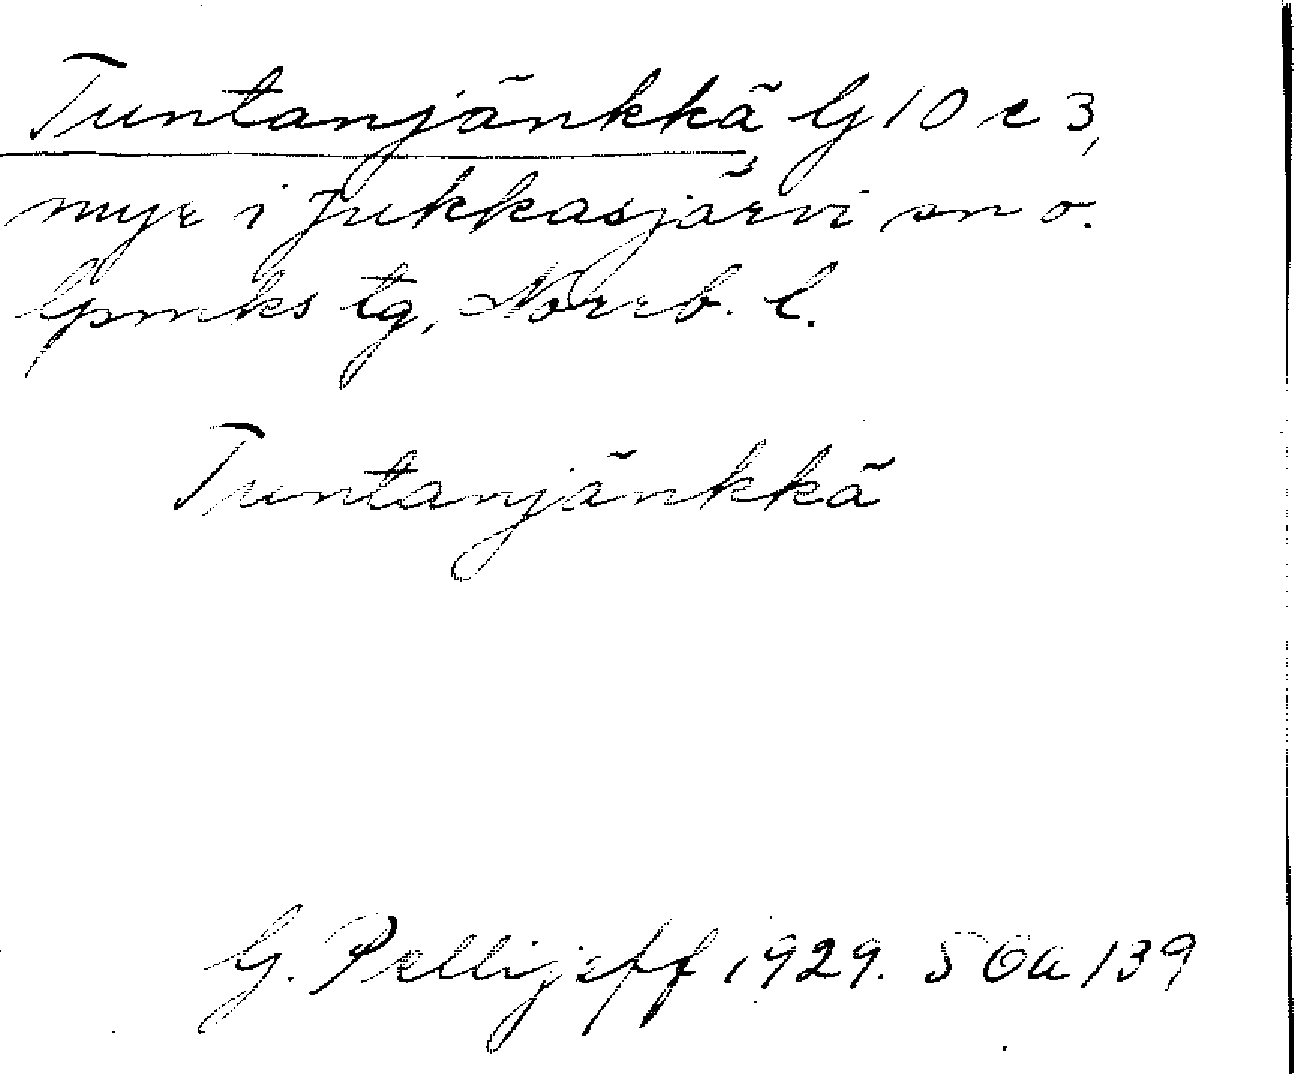 Tuntanjänkkä G 10 c 3,
myr i Jukkasjärvi sn o.
lpmks tg, Norrb. l.
Tuntanjänkkä
G. Pellijeff 1929. 5 Oa 139